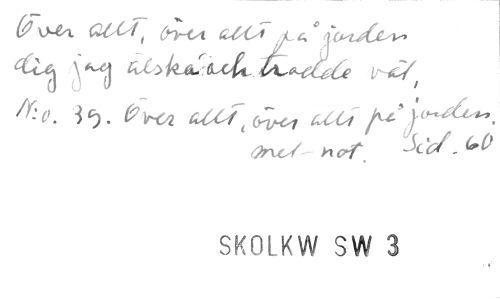 Över allt, över allt på jorden
dig jag älska och trodde väl,
N:o. 39. Över allt, över allt på jorden.
mel-not. Sid. 60
SKOLKW SW 3